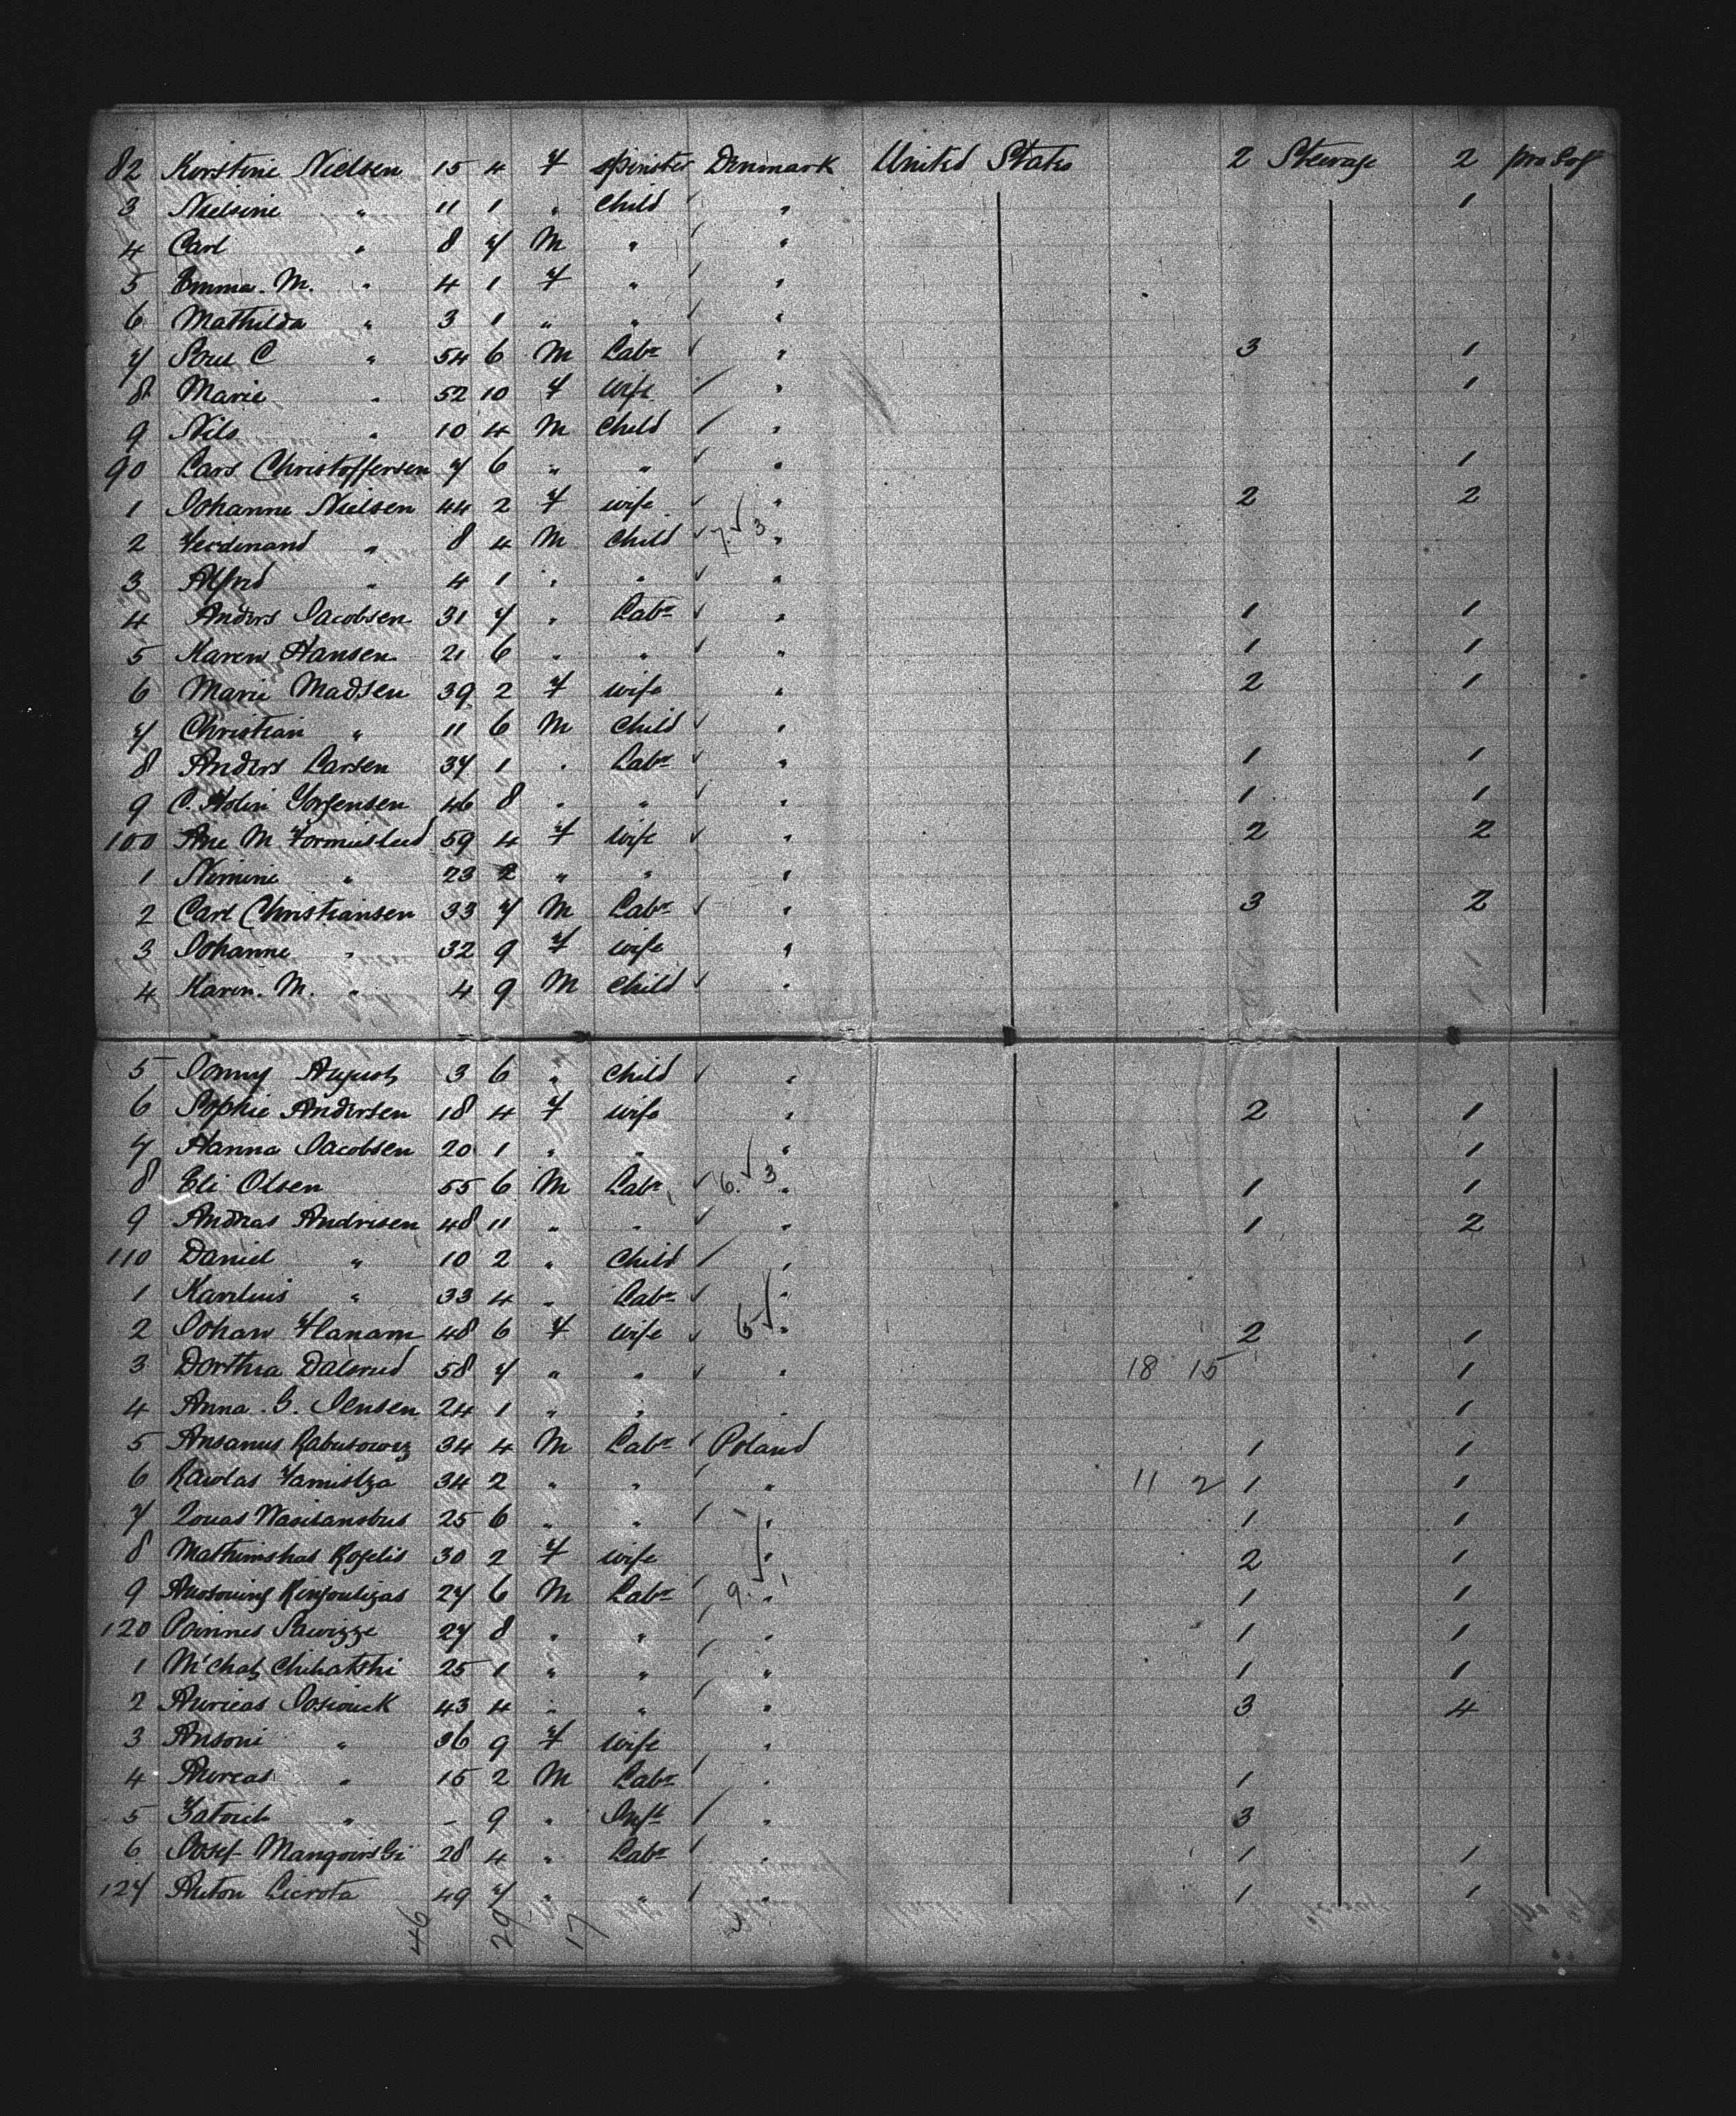 82 Kirstine Nielsen 15 4 F Spinster Denmark United States 2 Steerage 2 pro Sof
3 Nielsine " 11 1 " Child " 1
4 Carl " 8 7 M " "
5 Emma. M. " 4 1 F " "
6 Mathilda " 3 1 " " "
7 Soren C " 54 6 M Labr " 3 1
8 Marie " 52 10 F wife " 1
9 Nils " 10 4 M Child "
90 Lars Christoffersen 7 6 " " " 1
1 Johanne Nielsen 44 2 F wife " 2 2
2 Ferdinand " 8 4 M Child 7. 3 "
3 Alfred " 4 1 " " "
4 Anders Jacobsen 31 7 " Labr " 1 1
5 Karen Hansen 21 6 " " " 1 1
6 Marie Madsen 39 2 F wife " 2 1
7 Christian " 11 6 M Child "
8 Anders Larsen 37 1 " Labr " 1 1
9 C. Holm Jorgensen 46 8 " " " 1 1
100 Ane M 59 4 F wife " 2 2
1 " 23 2 " " "
2 Carl Christiansen 33 7 M Labr " 3 2
3 Johanne " 32 9 F wife "
4 Karen. M. " 4 9 M Child "
5 August 3 6 " Child "
6 Sophie Andersen 18 4 F wife " 2 1
7 Hanna Jacobsen 20 1 " " " 1
8 Eli Olsen 55 6 M Labr 6. 3 " 1 1
9 Andreas Andresen 48 11 " " " 1 2
110 Daniel " 10 2 " Child "
1 " 33 4 " Labr "
2 Johan 48 6 F wife 6 " 2 1
3 Dorthea Dalsrud 58 7 " " " 18 15 1
4 Anna. G. Jensen 24 1 " " " 1
5 Ansanus 34 4 M Labr Poland 1 1
6 34 2 " " " 11 2 1 1
7 25 6 " " " 1 1
8 Rogelis 30 2 F wife " 2 1
9 27 6 M Labr 9. 1 " 1 1
120 27 8 " " " 1 1
1 25 1 " " " 1 1
2 43 4 " " " 3 4
3 Ansoni " 36 9 F wife "
4 " 15 2 M Labr " 1
5 " - 9 " Inft " 3
6 Josef 28 4 " Labr " 1 1
127 Anton 49 7 " " " 1 1
46 29 17